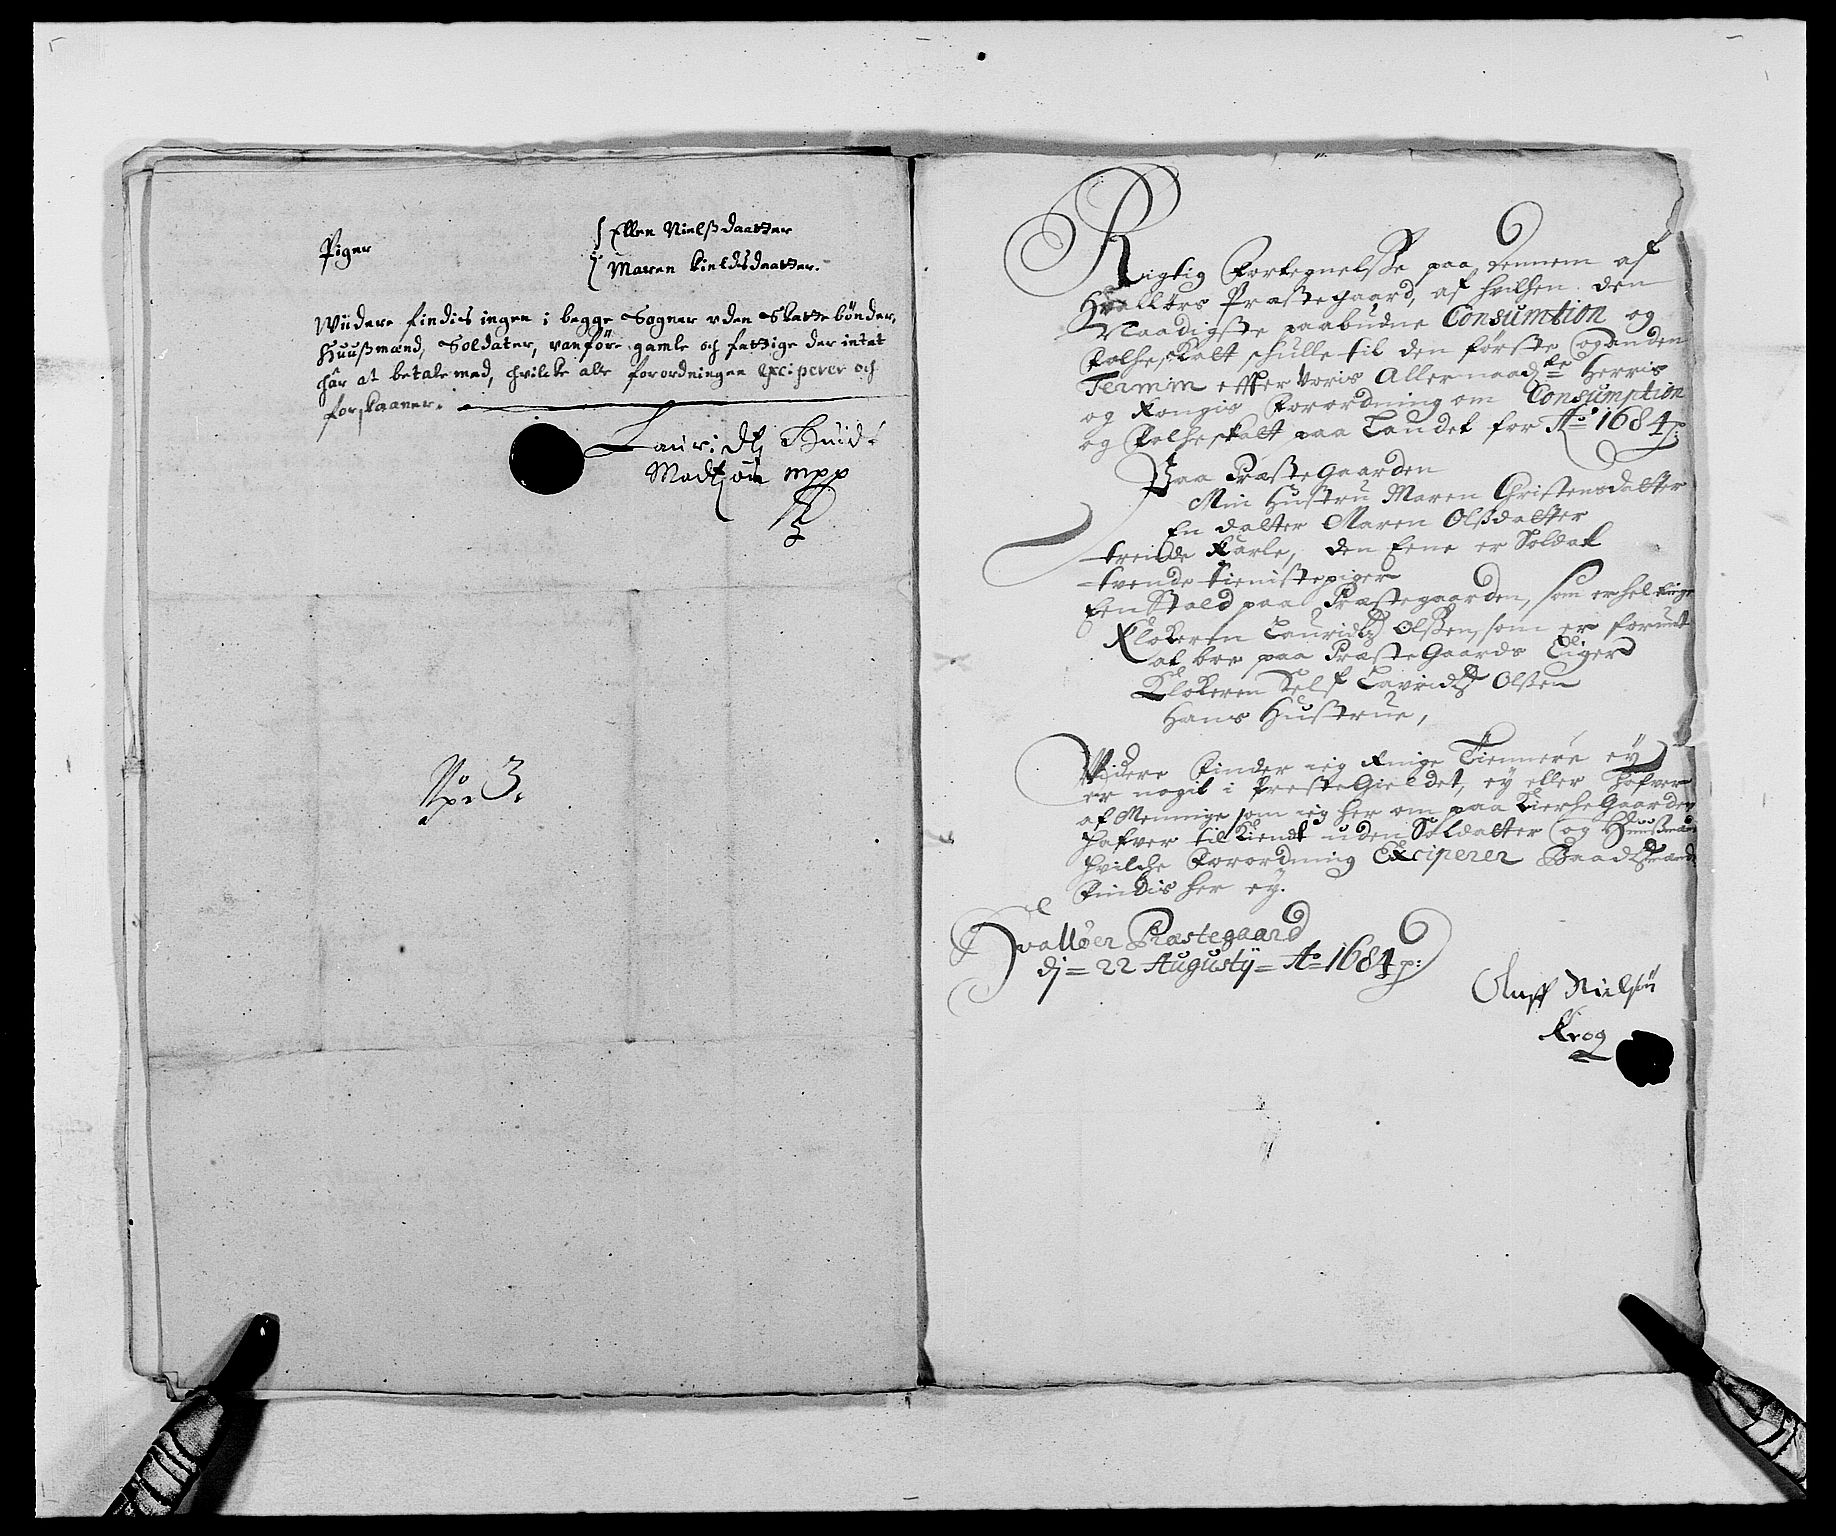 Piger
Ellen Nielsdaatter
Maren Kieldsdaatter.
Widere findis ingen i begge Sogner uden Skattebønder,
Huussmænd, Soldater, vanföre gamle och fattige der intet
har at betale med, hvilcke alle forordningen exciperer och
forskaaner.
Lauridtz Huid
Madtzön mpp
No. 3.
Rigtig Fortegnelsse paa dennem af
Hvallörs Præstegaard, af hvilchen den
Naadigste paabudne Consumtion og
Folcheskatt schulle til den første og anden
Termin effter voris Allernaadste Herris
og Kongis Forordning om Consumption
og Folcheskatt paa Landet for Ao 1684 p:
Paa Præstegaarden
Min Hustru Maren Christensdatter
En datter Maren Olssdatter
trende Karle, den Eene er Soldat
tvende tienistepiger
Een Stald paa Præstegaarden, som er hel
Klokeren Lauridtz Olssen, som er forundt
at boe paa PræsteGaards Eiger
Klokeren Self Lavridtz Olssen
Hans Hustrue,
Videre Finder ieg Einge Tiennere ey
er nogit i PrestteGieldet, ey eller hafver
af Mennige som ieg her om paa KierkeGaarden
hafver tilkiendt uden Soldatter og Huussmænd
hvilche Forordning Exciperer Baadtzmænd
Findis her ey.
Hvalløer Præstegaard
dj = 22 Augustij = Ao 1684 p:
Oluff Nielsön
Krog